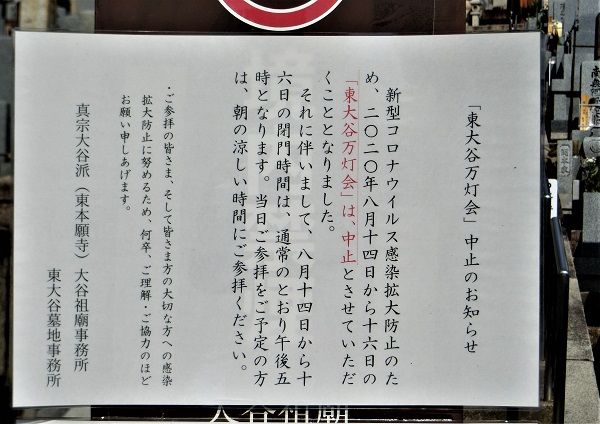 「東大谷万灯会」中止のお知らせ
新型コロナウイルス感染拡大防止のた
め、二〇二〇年八月十四日から十六日の
「東大谷万灯会」は、中止とさせていただ
くこととなりました。
それに伴いまして、八月十四日から十
六日の閉門時間は、通常のとおり午後五
時となります。当日ご参拝をご予定の方
は、朝の涼しい時間にご参拝ください。
・ご参拝の皆さま、そして皆さま方の大切な方への感染
拡大防止に努めるため、何卒、ご理解・ご協力のほど
お願い申しあげます。
真宗大谷派（東本願寺）大谷祖廟事務所
東大谷墓地事務所
大谷祖廟